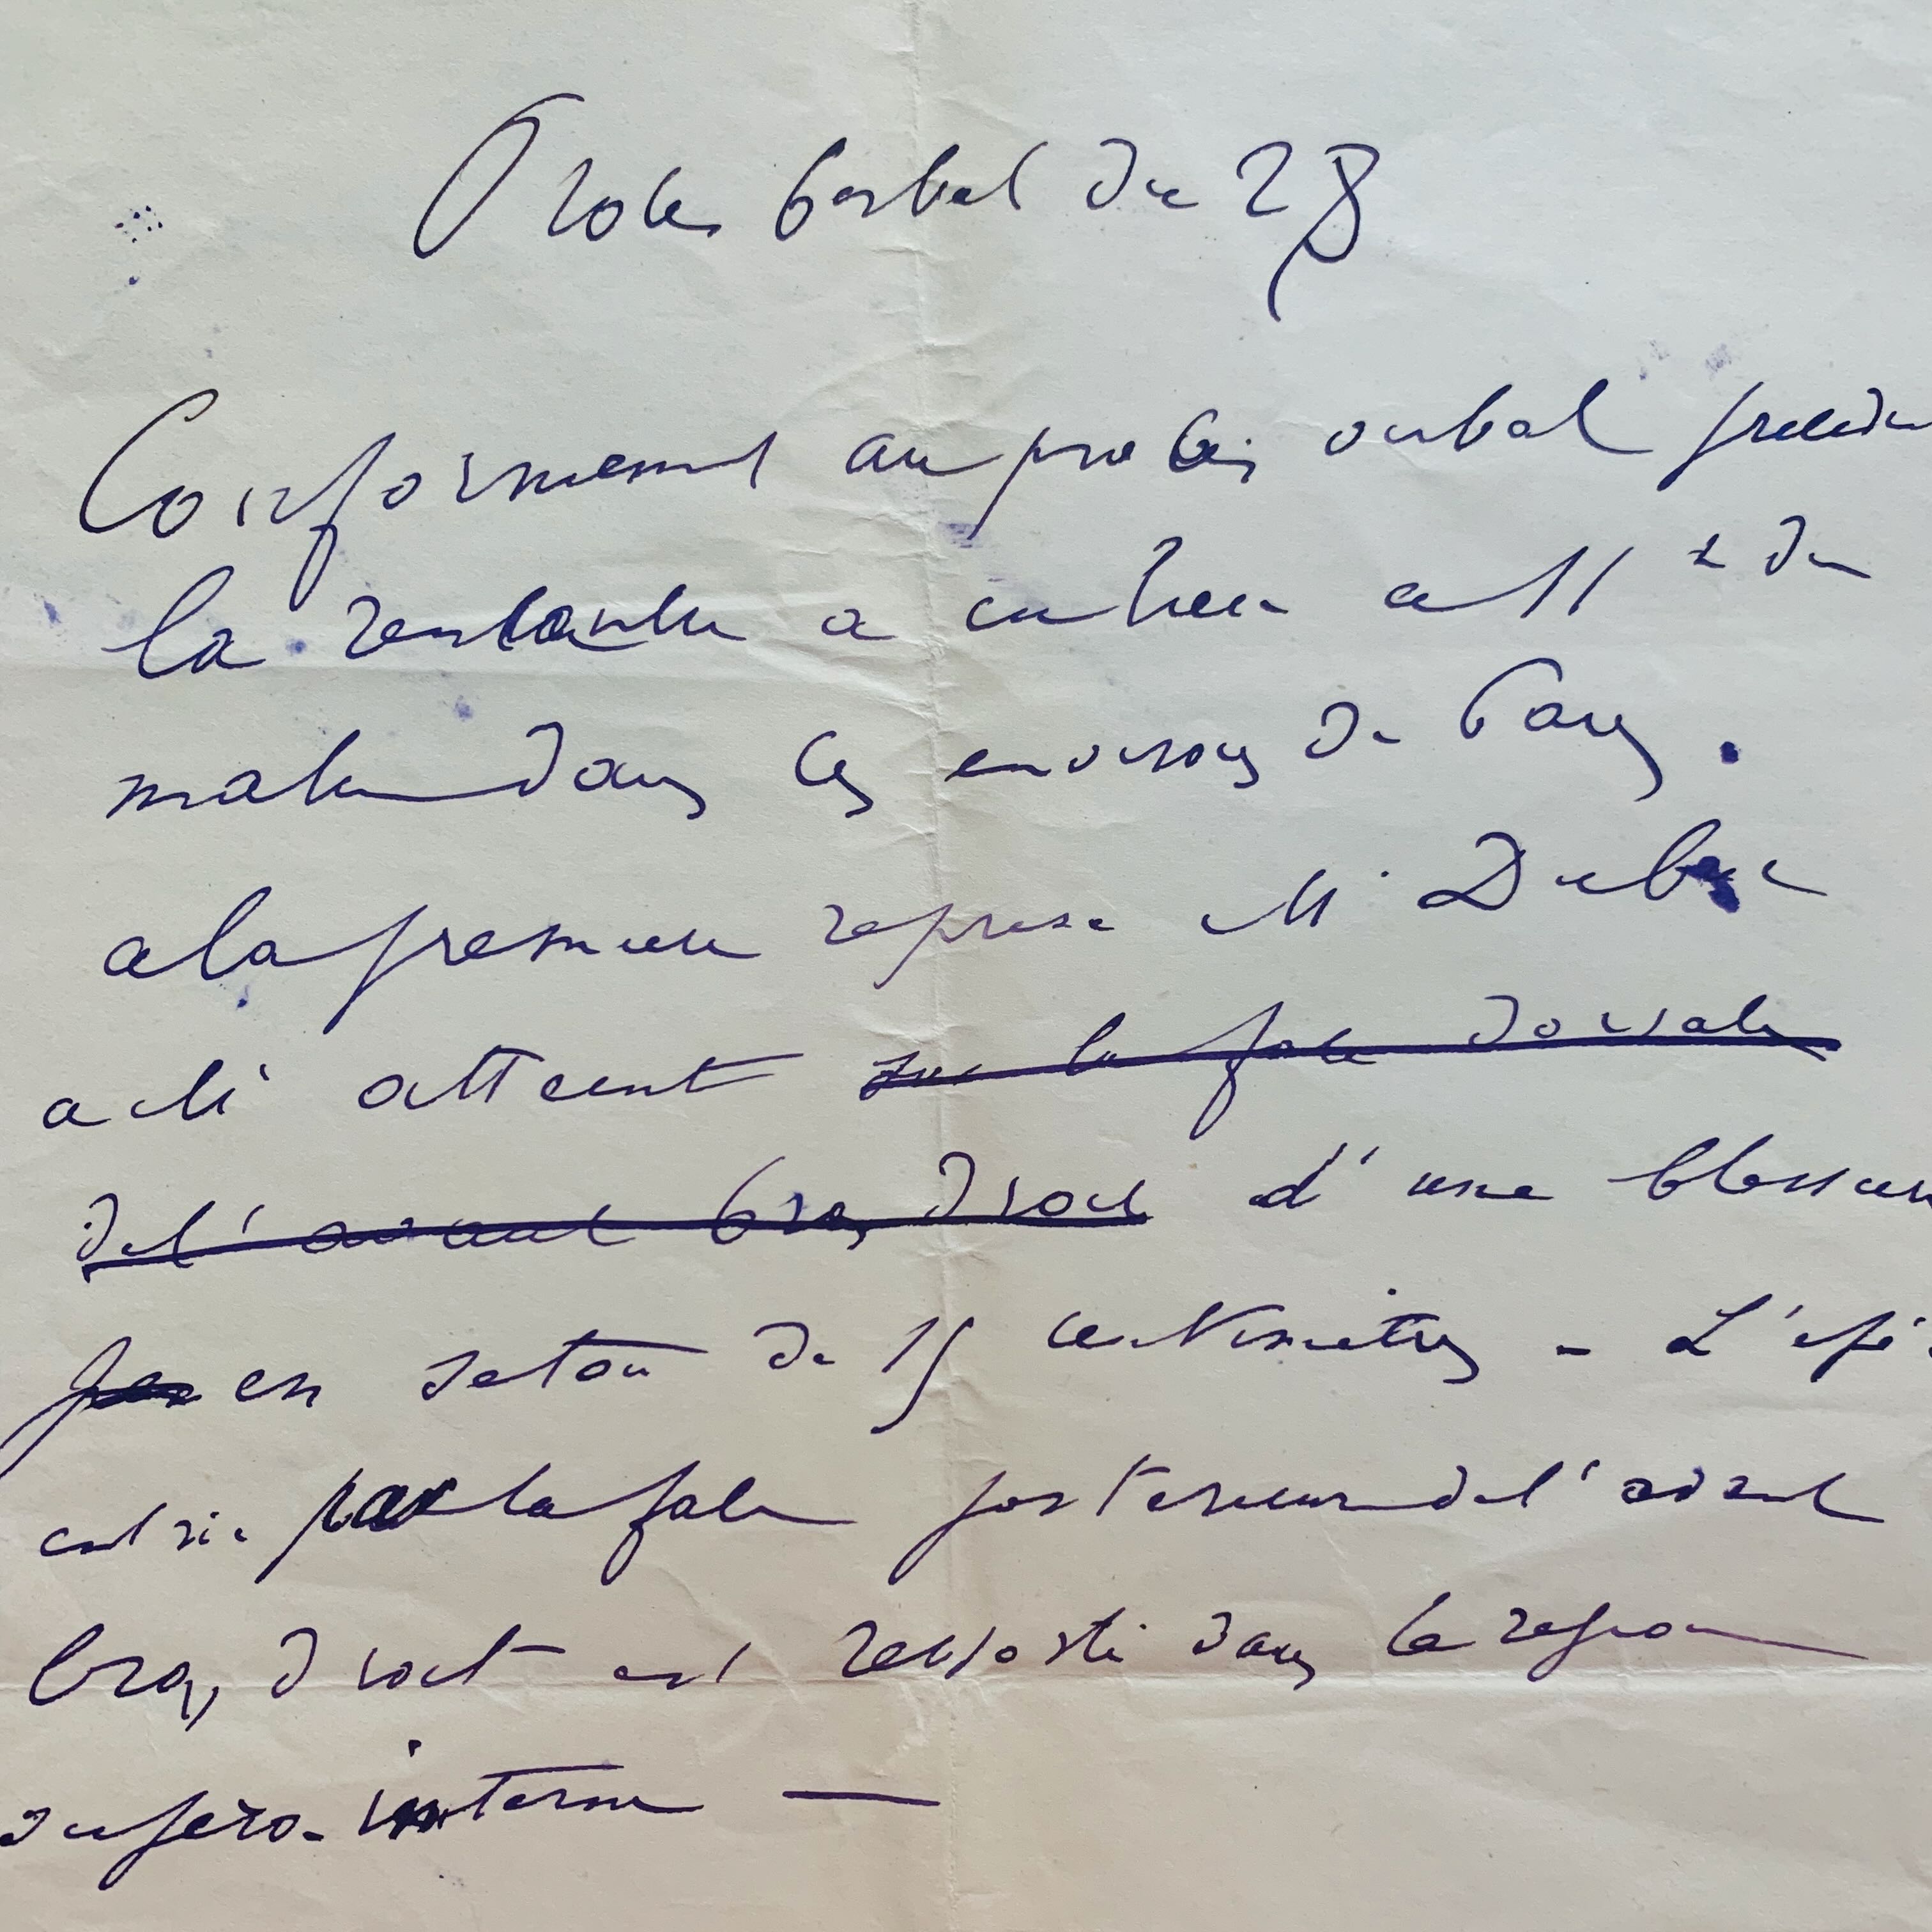 Proces verbal du 28
Conformement au proces verbal preceden
la rencontre a eu lieu a 11 h du
matin dans les environs de Paris.
a la premiere reprise M. Dubuc
a été atteint sur la face dorsale
de l'avant bras droit d'une blessure
par en seton de 15 centimetres - L'epée
entrée par la face posterieure de l'avant
bras droit est ressortie dans la region
supero-interne —